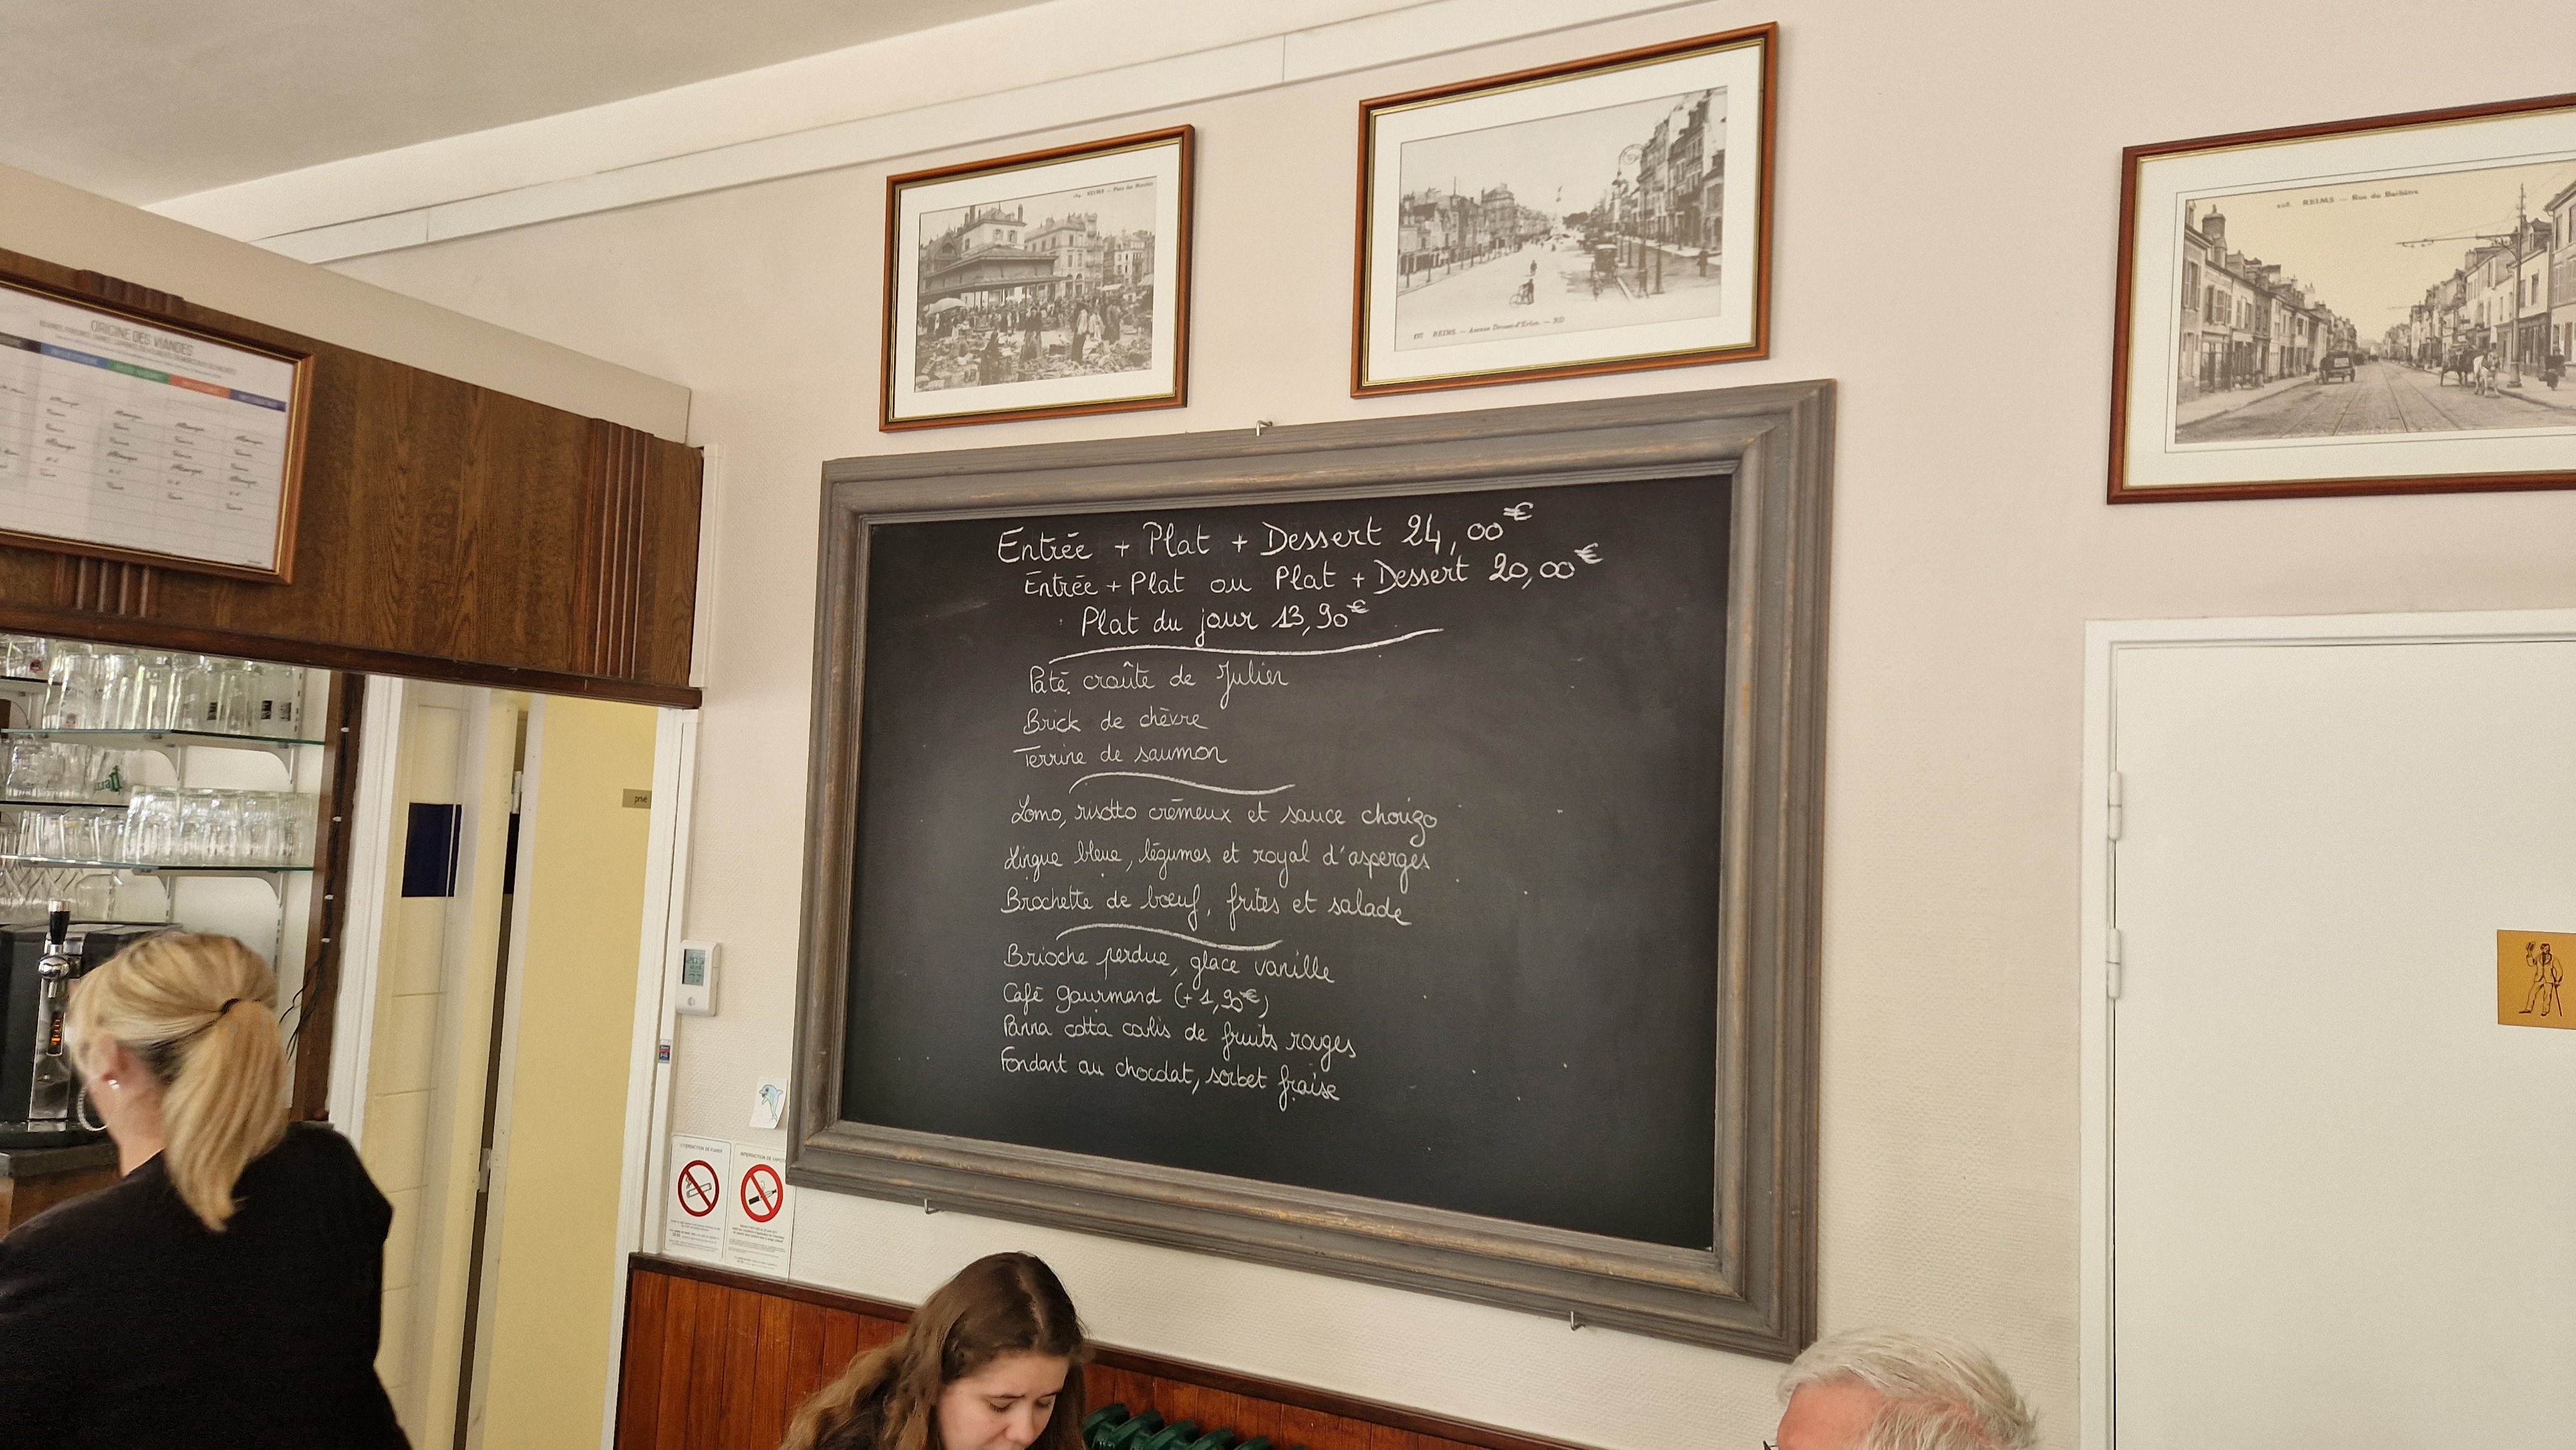 ORIGINE DES VIANDES
REIMS — Place des Marchés
197 REIMS. — Avenue Drouet-d'Erlon. — ND
228. REIMS — Rue du Barbâtre
Entrée + Plat + Dessert 24,00€
Entrée + Plat ou Plat + Dessert 20,00€
Plat du jour 13,90€
Paté croûte de Julien
Brick de chèvre
Terrine de saumon
Lomo, risotto crémeux et sauce chorizo
Lingue bleue, légumes et royal d'asperges
Brochette de bœuf, frites et salade
Brioche perdue, glace vanille
Café gourmand (+ 1,90€)
Panna cotta coulis de fruits rouges
Fondant au chocolat, sorbet fraise
privé
INTERDICTION DE FUMER
INTERDICTION DE VAPOTER